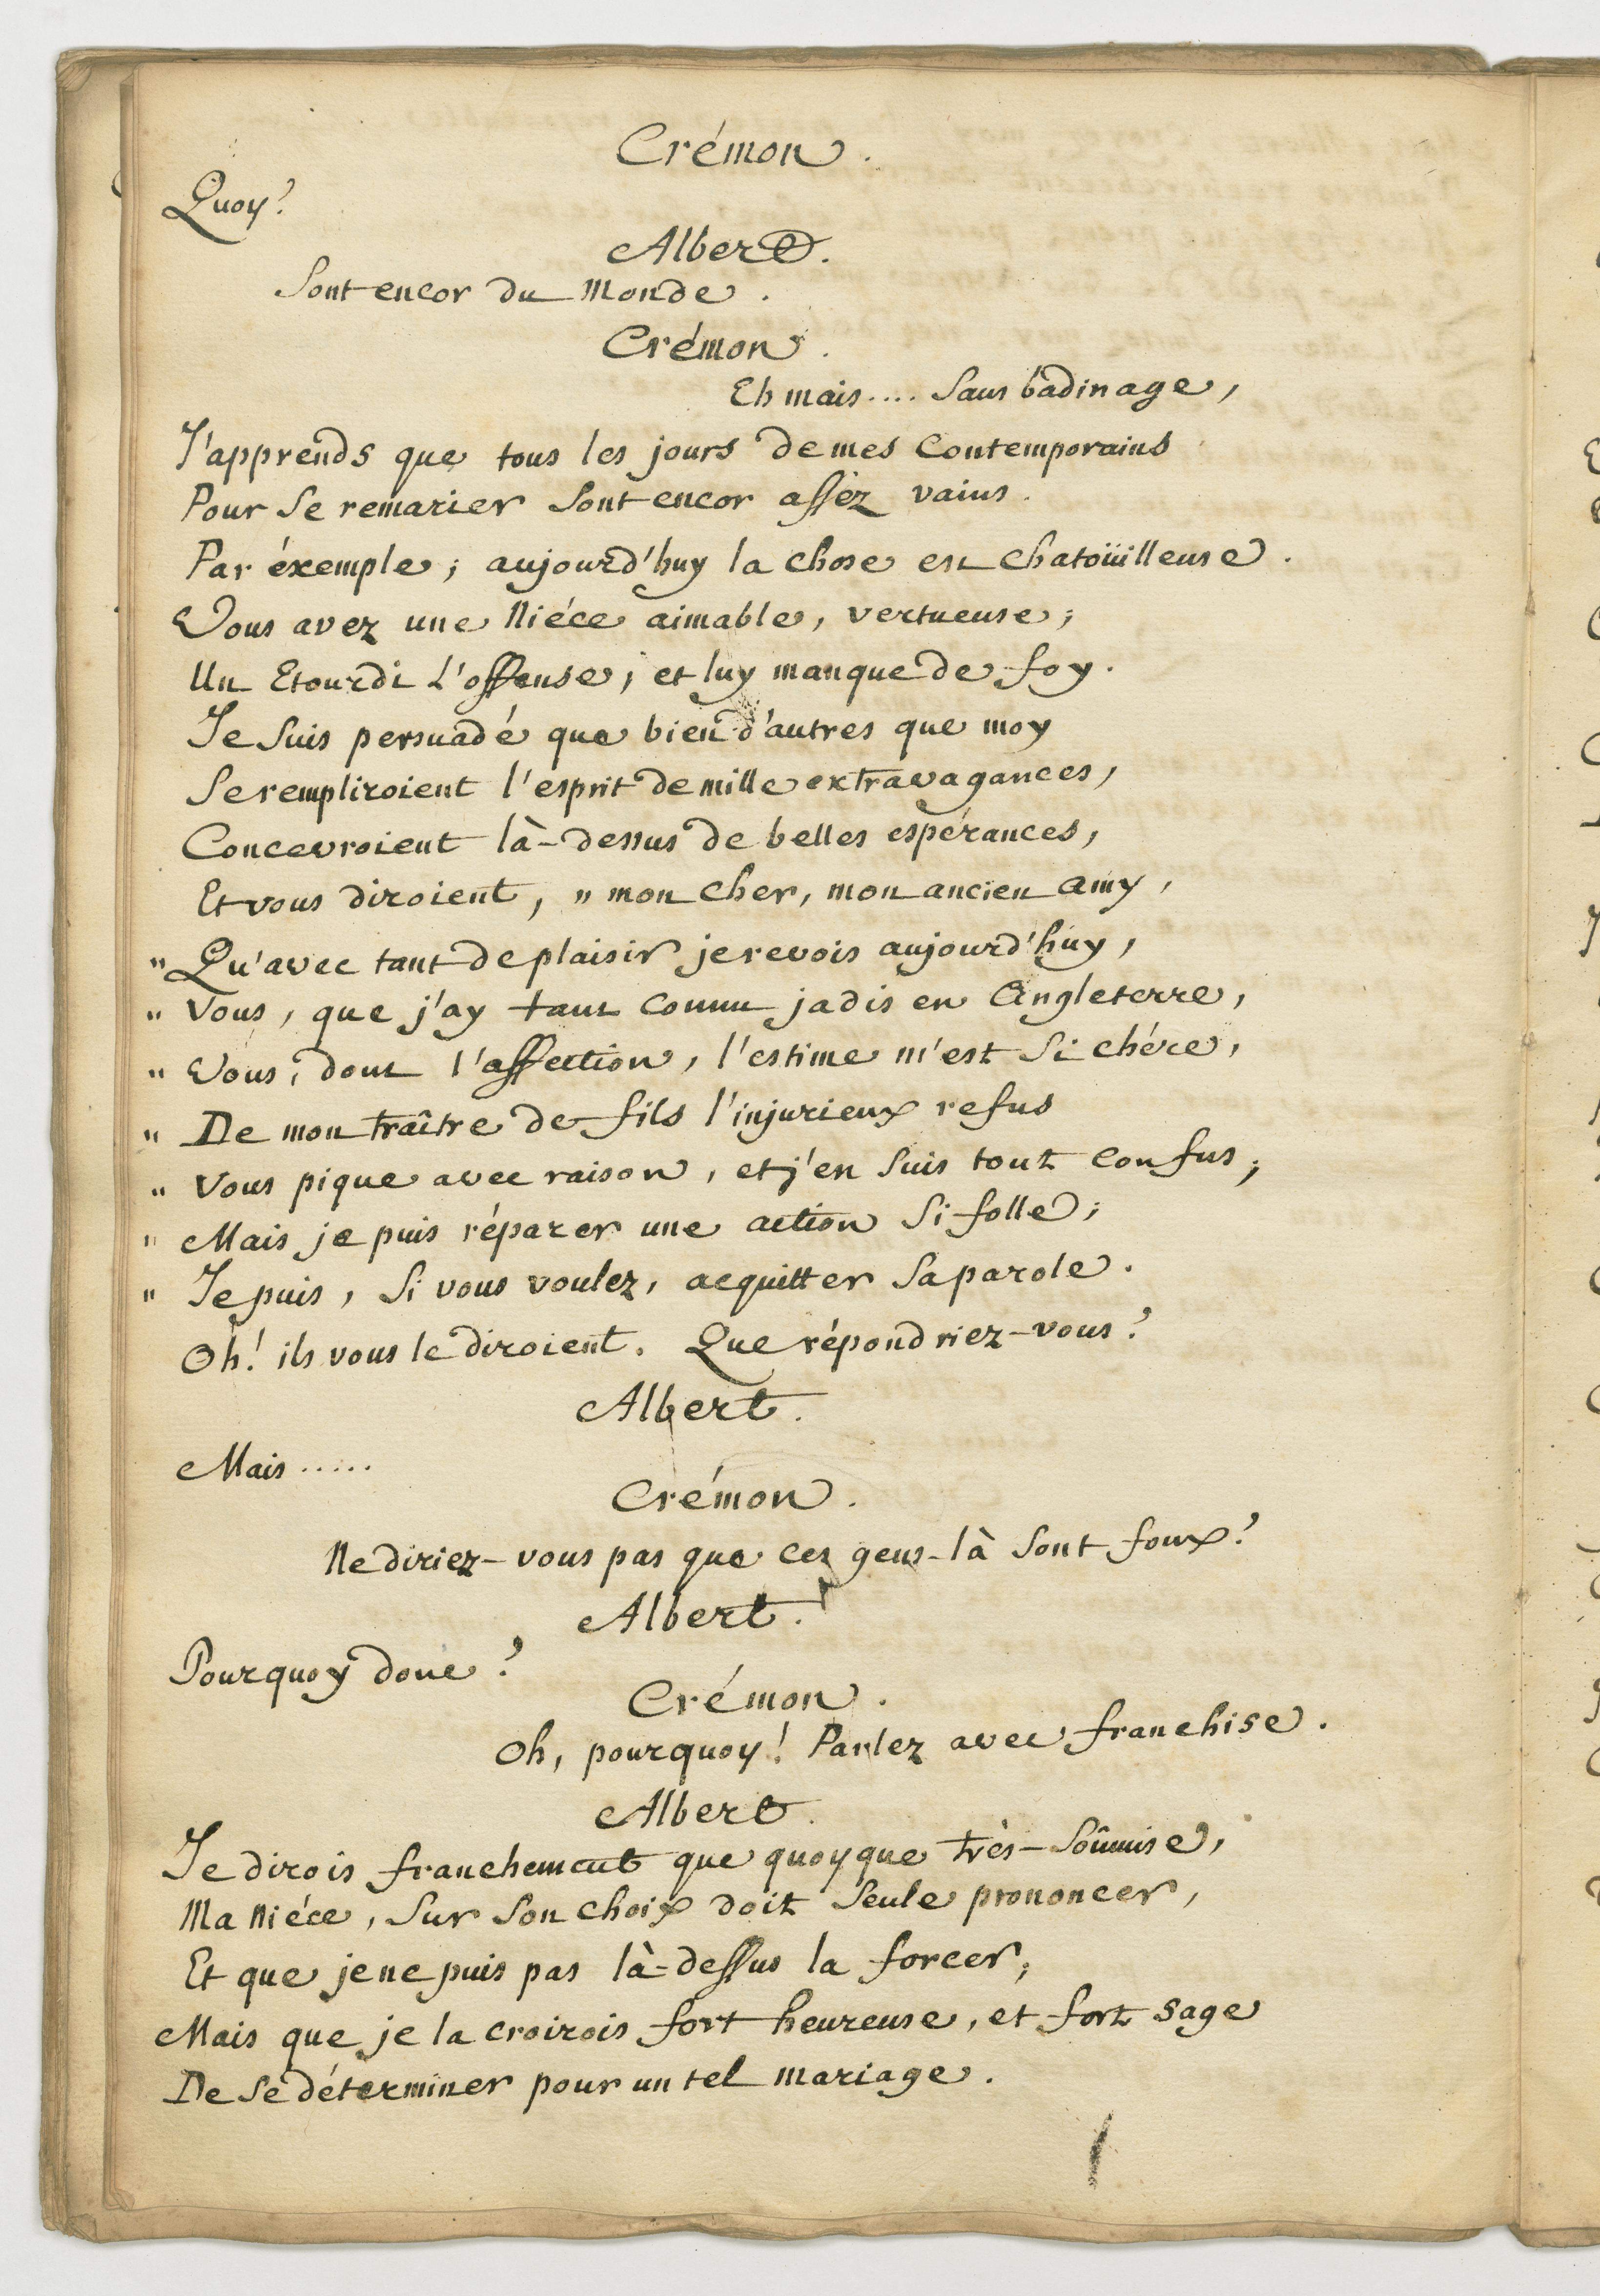 Crémon.
Quoy?
Albert.
Sont encor du Monde.
Crémon.
Eh mais.... Sans badinage,
J'apprends que tous les jours de mes Contemporains
Pour Se remarier Sont encor assèz vains.
Par éxemple; aujourd'huy la chose est chatoüilleuse.
Vous avez une Niéce aimable, vertueuse;
Un Etourdi L'offense; et luy manque de foy.
Je Suis persuadé que bien d'autres que moy
Se rempliroient l'esprit de mille extravagances,
Concevroient là-dessus de belles espérances,
Et vous diroient, " mon cher, mon ancien amy,
" Qu'avec tant de plaisir je revois aujourd'huy,
" Vous, que j'ay tant connu jadis en Angleterre,
" Vous, dont l'affection, l'estime m'est Si chére,
" De mon traître de fils l'injurieux refus
" Vous pique avec raison, et j'en Suis tout confus;
" Mais je puis réparer une action Si folle;
" Je puis, Si vous voulez, acquitter Sa parole.
Oh! ils vous le diroient. Que répondriez-vous?
Albert.
Mais.....
Crémon.
Ne diriez-vous pas que ces gens-là Sont foux?
Albert.
Pourquoy donc?
Crémon.
Oh, pourquoy! Parlez avec franchise.
Albert.
Je dirois franchement que quoyque très-Soûmise,
Ma Niéce, Sur Son choix doit Seule prononcer,
Et que je ne puis pas là-dessus la forcer;
Mais que je la croirois fort heureuse, et fort sage
De Se déterminer pour un tel mariage.